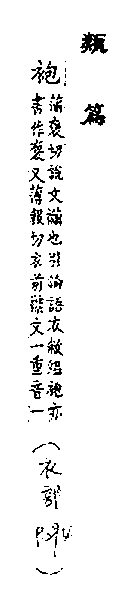 類篇
袍
薄褒切說文襺也引論語衣敝縕袍亦
書作袌又薄報切衣前襟文一重音一
（衣部）